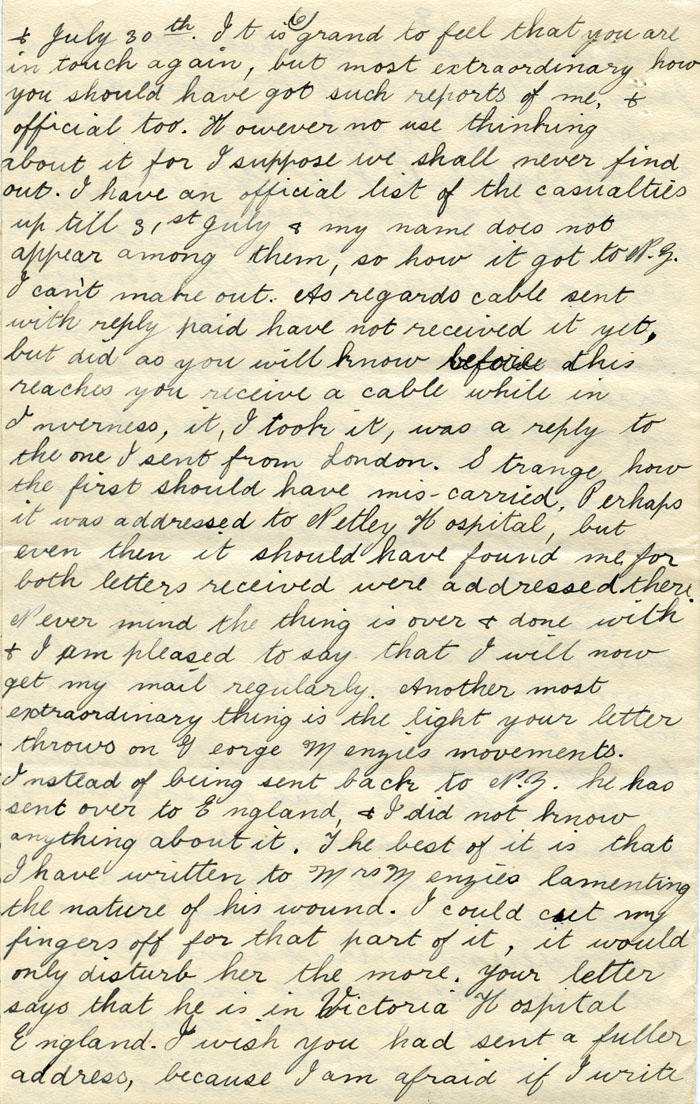 (6)
& July 30th. It is grand to feel that you are
in touch again, but most extraordinary how
you should have got such reports of me, &
official too. However no use thinking
about it for I suppose we shall never find
out. I have an official list of the casualties
up till 31st July & my name does not
appear among them, so how it got to N.Z.
I can't make out. As regards cable sent
with reply paid have not received it yet,
but did as you will know before this
reaches you receive a cable while in
Inverness, it, I took it, was a reply to
the one I sent from London. Strange how
the first should have mis-carried. Perhaps
it was addressed to Netley Hospital, but
even then it should have found me, for
both letters received were addressed there.
Never mind the thing is over & done with
& I am pleased to say that I will now
get my mail regularly. Another most
extraordinary thing is the light your letter
throws on George Menzies movements.
Instead of being sent back to N.Z. he has
sent over to England, & I did not know
anything about it. The best of it is that
I have written to Mrs Menzies lamenting
the nature of his wound. I could cut my
fingers off for that part of it, it would
only disturb her the more. Your letter
says that he is in Victoria Hospital
England. I wish you had sent a fuller
address, because I am afraid if I write